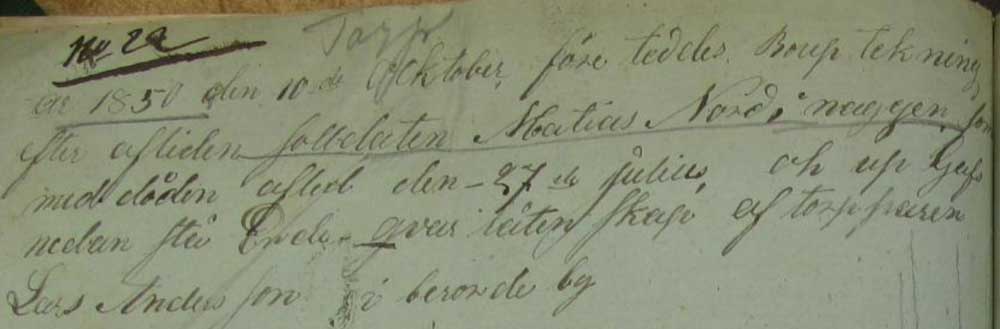 No 22 Torp
år 1850 den 10 de Oktober, före teddes. Boup tekning
efter afliden solldaten Matias Nord, i naggen, som
med döden afled den - 27 de julius, och up Gafs
nedan stå Ende qvar låten skap af torpparen
Lars Anders son i beronde by